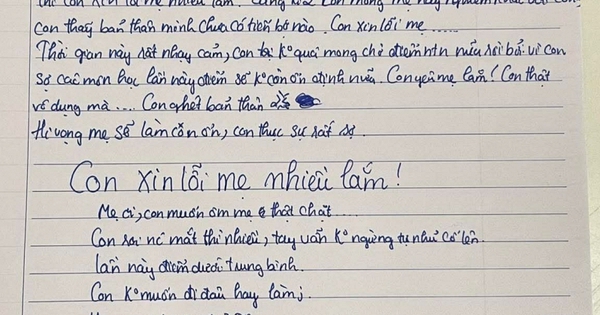 con thấy bản thân mình chưa có tiến bộ nào. Con xin lỗi mẹ
Thời gian này rất nhạy cảm, con K° quá mong chờ điểm ntn nữa rồi bà vì con
sợ các môn học lần này điểm sẽ K° còn ổn định nữa. Con yêu mẹ lắm! Con thật
vô dụng mà .... Con ghét bản thân
Hi vọng mẹ sẽ làm còn ổn, con thực sự rất sợ.
Con xin lỗi mẹ nhiều lắm!
Mẹ ơi, con muốn ôm mẹ thật chặt ......
Con rơi nc mắt thì nhiều, tay vẫn K° ngừng tự như cố lên.
lần này điểm dưới trung bình.
Con K° muốn đi đâu hay làm j.